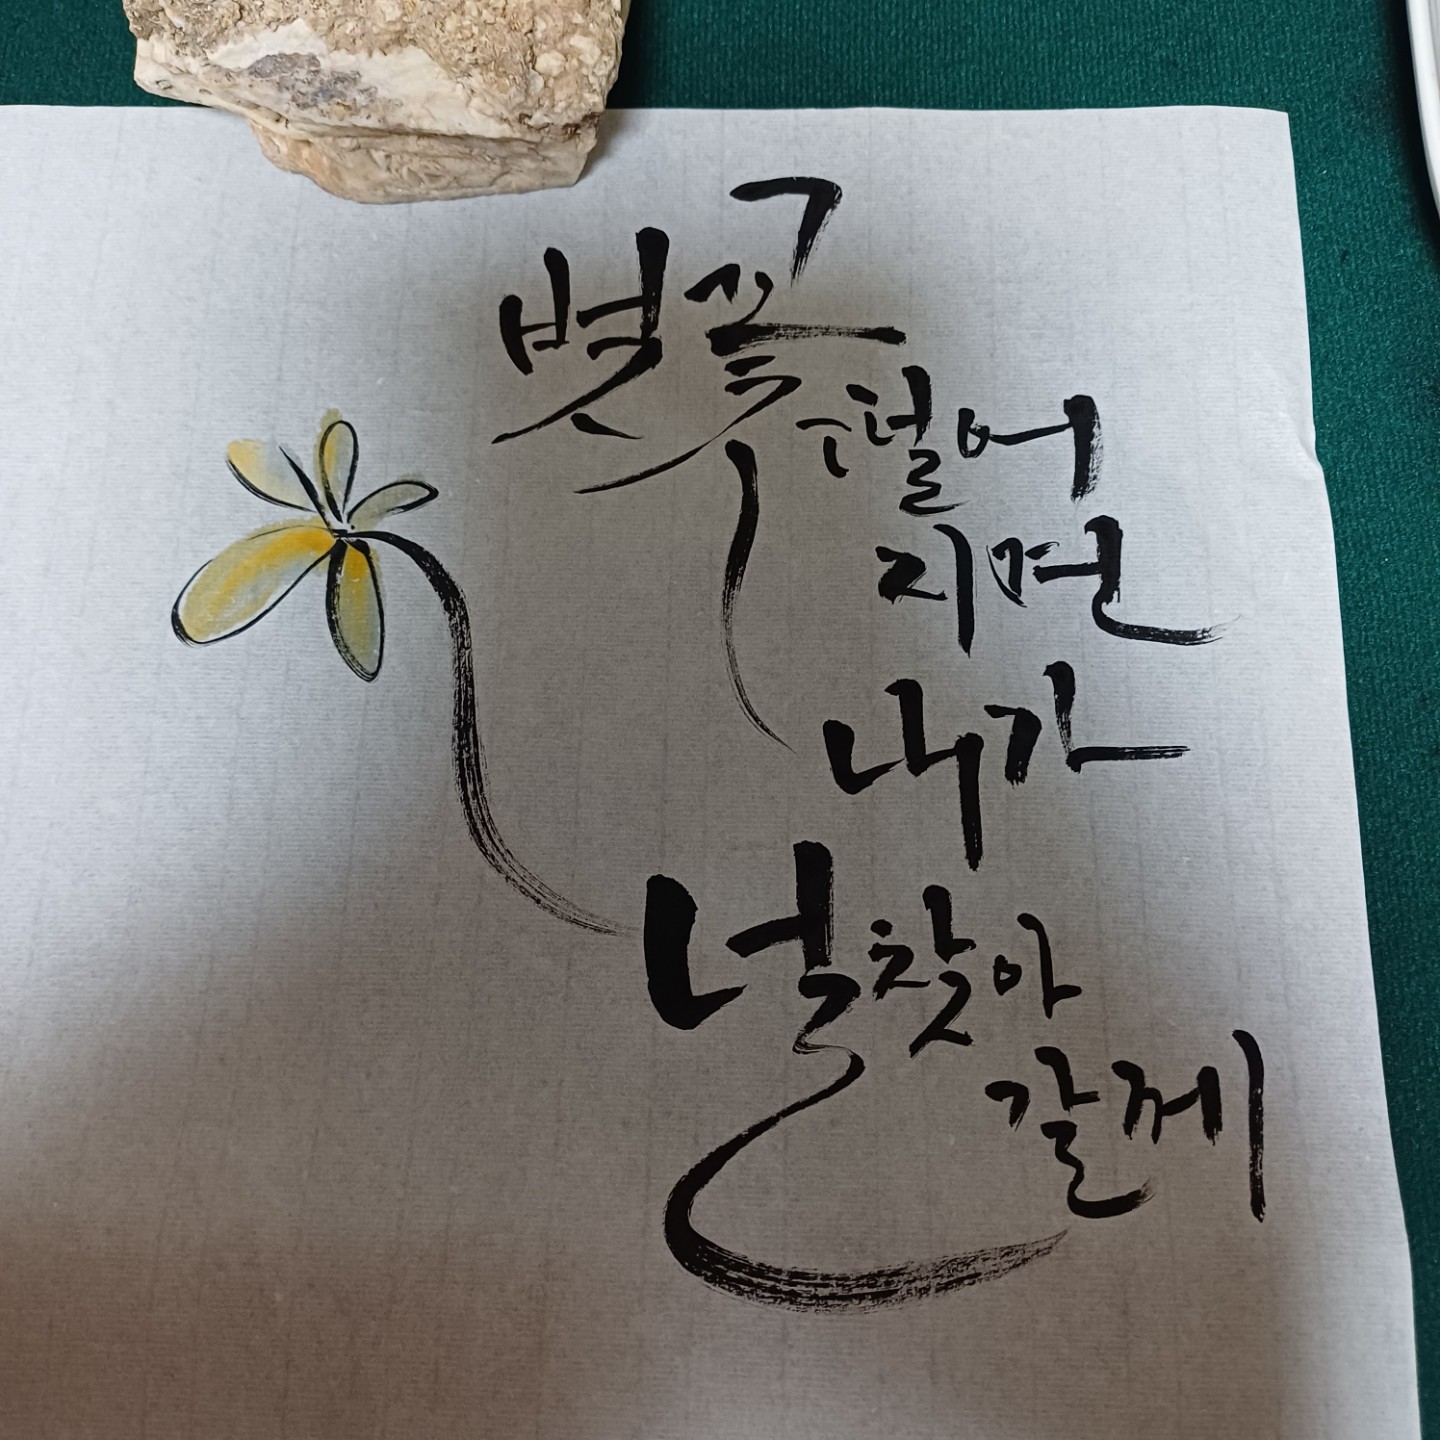 벚꽃
떨어
지면
내가
널 찾아
갈께